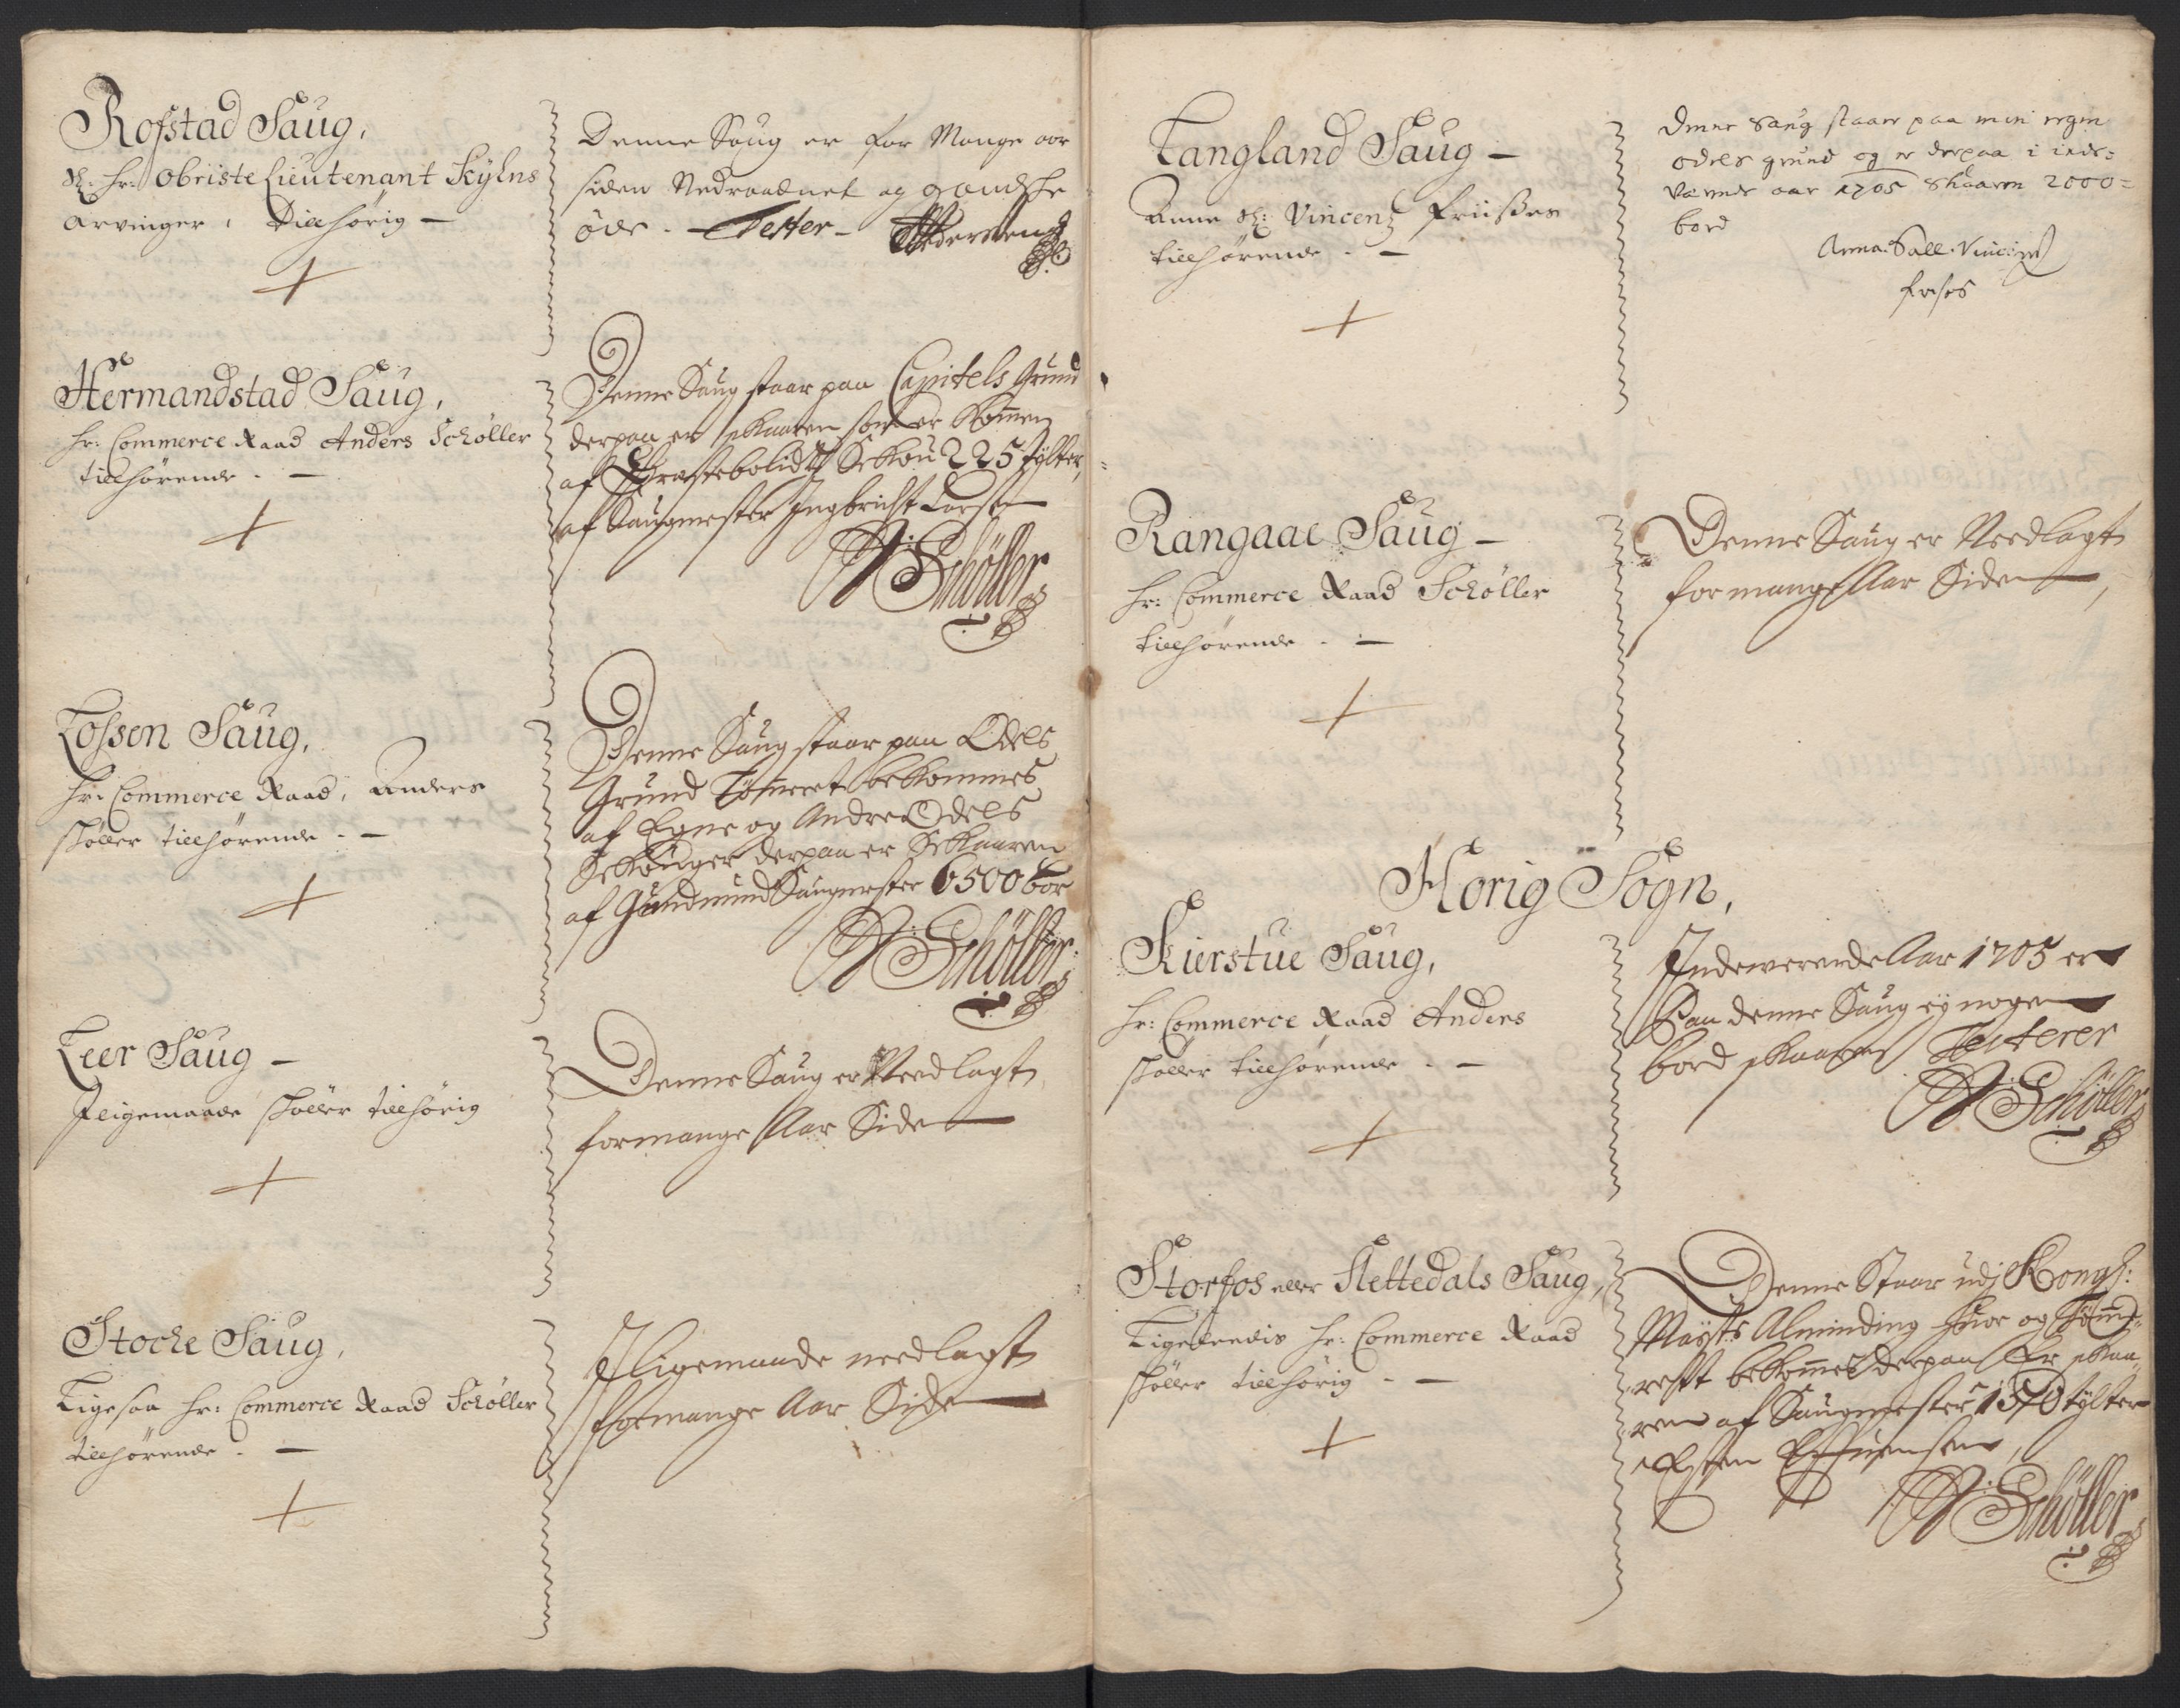 Rofstad Saug,
Sl: Hr: Obriste Lieutenant Kÿlns
arvinger, tilhørig —
Denne Saug er for Mange aar
siden Nedraadnet og gandske
øde. — Tester —
Hermandstad Saug,
Hr: Commerce Raad Anders Schøller
tilhørende . —
Denne Saug staar paa Capitels Grund
derpaa er skaaren som er kommen
af Sckou 225 tÿlter,
af Saugmester Ingbricht Larsen
A Schøller
Lossen Saug,
Hr: Commerce Raad, Anders
skøller tilhørende . —
Denne Saug staar paa Odels
Grund Tømeret bekommes
af Egne og Andre Odels
Sckouger derpaa er Sckaaren
af Gundmund Saugmester 6500 bor
A Schøller
Leer Saug —
Iligemaade skøller tilhørig
Denne Saug er Needlagt
for mange Aar Siden
Stocke Saug,
Ligesaa Hr: Commerce Raad Schøller
tilhørende . —
Iligemaade needlagt
for mange Aar Siden
Langland Saug —
Anne Sl: Vincentz Friises
tilhørende . —
denne saug staar paa min egen
odels grund og er derpaa i inde=
værende aar 1705 skaaren 2000=
bord
Anna Sall. Vincens
frises
Rangaae Saug —
Hr: Commerce Raad Schøller
tilhørende . —
Denne Saug er Needlagt
for mange Aar Siden,
Horig Sogn,
Kierstue Saug,
Hr: Commerce Raad Anders
skøller tilhørende . —
Indewerende Aar 1705 er
Paa denne Saug eÿ nogen
bord skaaren Testerer
A Schøller
Storfos eller Slettedals Saug,
Ligeledis Hr: Commerce Raad
skøller tilhørig . —
Denne Staar udj Kongl:
Maÿsts Alminding huor og Tømme-
rett bekommes derpaa Er skaa-
ren af Saugmester 1570 tÿlter
Esten
A Schøller